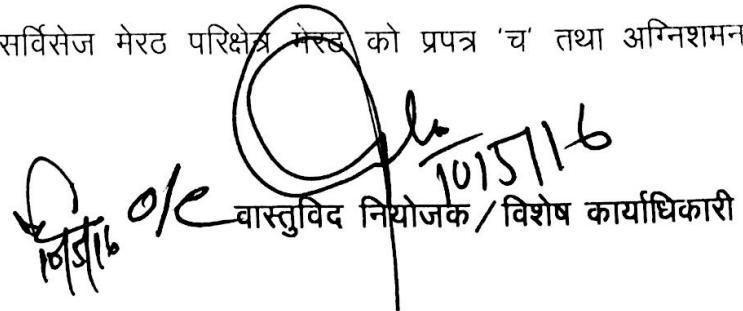 सर्विसेज मेरठ परिक्षेत्र मेरठ को प्रपत्र 'च' तथा अग्निशमन
10/5/16
o/c वास्तुविद नियोजक / विशेष कार्याधिकारी
10/5/16